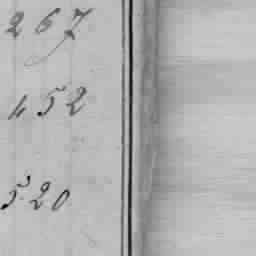 267
452
520